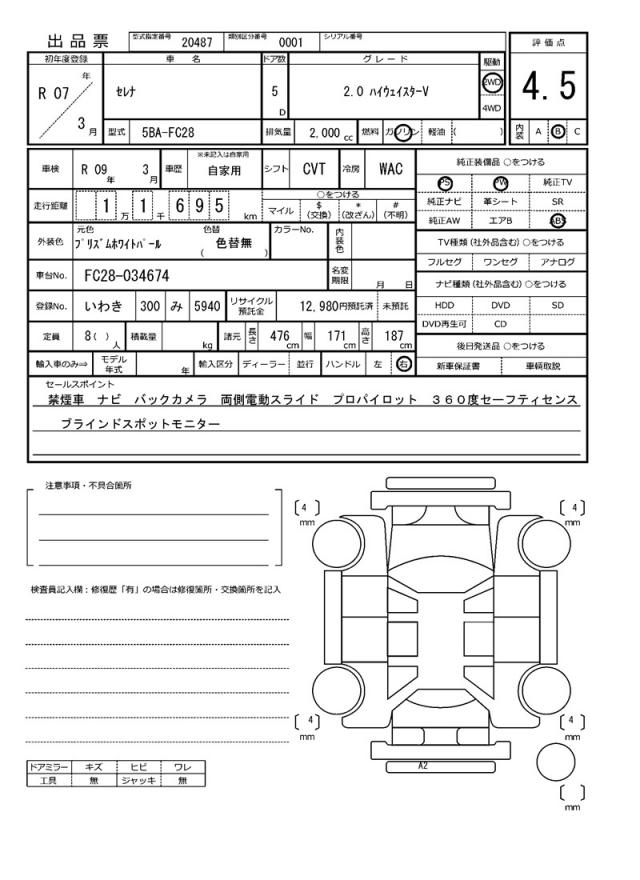 出品票 型式指定番号 20487 類別区分番号 0001 シリアル番号
初年度登録 車名 ドア数 グレード 駆動 評価点
R 07 年 3 月 セレナ 5 D 2.0 ハイウェイスターV 2WD 4WD 4.5
型式 5BA-FC28 排気量 2,000 cc 燃料 ガソリン 軽油 ( ) 内装 A B C
車検 R 09 年 3 月 車歴 ※未記入は自家用 自家用 シフト CVT 冷房 WAC 純正装備品 ○をつける
PS PW 純正TV
走行距離 1 万 1 千 6 9 5 km ○をつける マイル $ (交換) * (改ざん) # (不明) 純正ナビ 革シート SR
純正AW エアB ABS
外装色 元色 プリズムホワイトパール 色替 ( 色替無 ) カラーNo. 内装色 TV種類 (社外品含む) ○をつける
フルセグ ワンセグ アナログ
車台No. FC28-034674 名変期限 月 日 ナビ種類 (社外品含む) ○をつける
登録No. いわき 300 み 5940 リサイクル預託金 12,980円預託済 未預託 HDD DVD SD
DVD再生可 CD
定員 8( ) 人 積載量 kg 諸元 長さ 476 cm 幅 171 cm 高さ 187 cm 後日発送品 ○をつける
輸入車のみ⇒ モデル年式 年 輸入区分 ディーラー 並行 ハンドル 左 右 新車保証書 車輌取説
セールスポイント
禁煙車 ナビ バックカメラ 両側電動スライド プロパイロット 360度セーフティセンス
ブラインドスポットモニター
注意事項・不具合箇所
[ 4 ] mm [ 4 ] mm
検査員記入欄:修復歴「有」の場合は修復箇所・交換箇所を記入
[ 4 ] mm [ 4 ] mm
A2
ドアミラー キズ ヒビ ワレ
工具 無 ジャッキ 無
[ ] mm